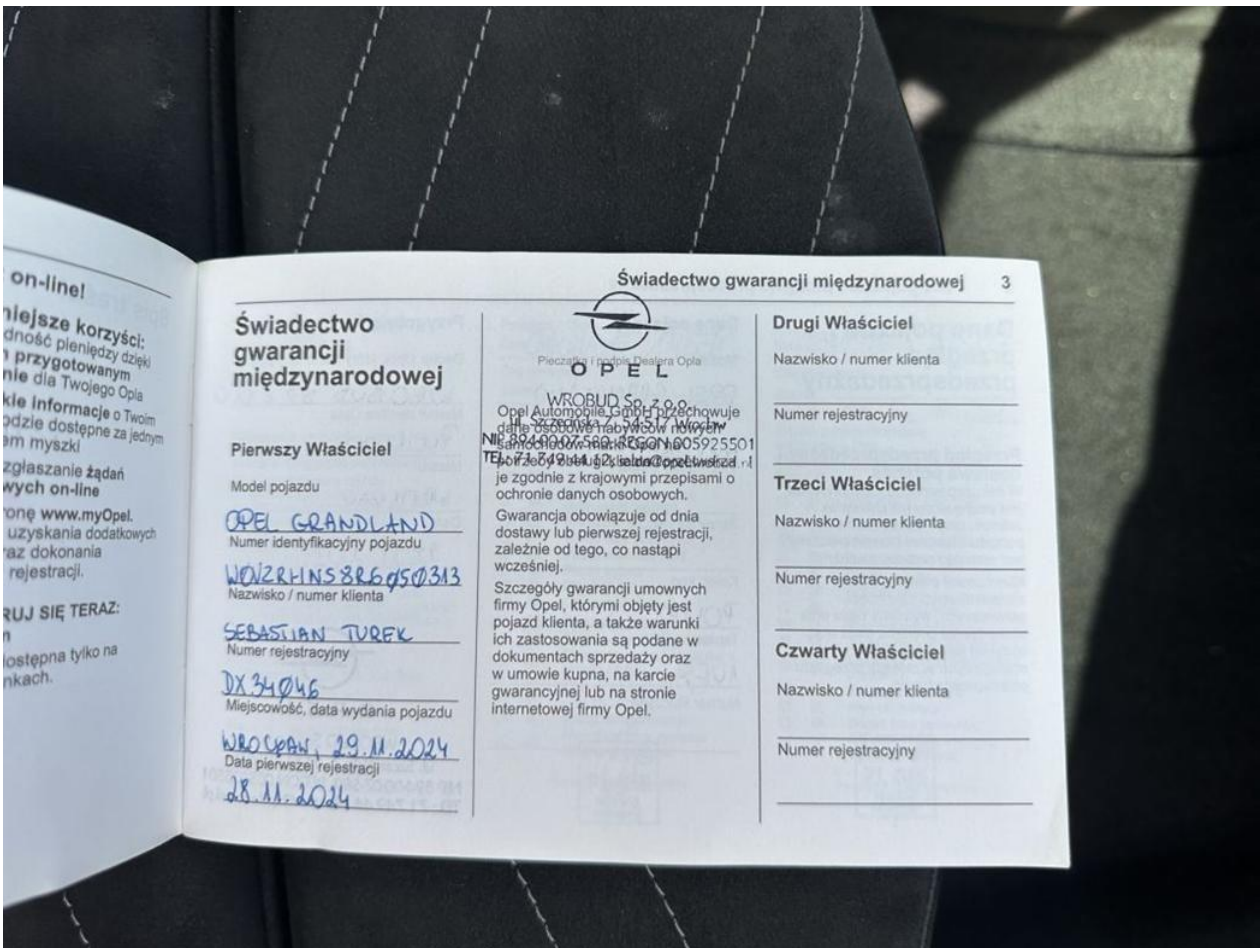 on-line!
niejsze korzyści:
dność pieniędzy dzięki
przygotowanym
nie dla Twojego Opla
kie informacje o Twoim
odzie dostępne za jednym
em myszki
zgłaszanie żądań
wych on-line
onę www.myOpel.
uzyskania dodatkowych
raz dokonania
rejestracji.
RUJ SIĘ TERAZ:
ostępna tylko na
nkach.
Świadectwo gwarancji międzynarodowej 3
Świadectwo
gwarancji
międzynarodowej
Pierwszy Właściciel
Model pojazdu
OPEL GRANDLAND
Numer identyfikacyjny pojazdu
W0VZRHNS8R6050313
Nazwisko / numer klienta
SEBASTIAN TUREK
Numer rejestracyjny
DX34046
Miejscowość, data wydania pojazdu
WROCŁAW, 29.11.2024
Data pierwszej rejestracji
28.11.2024
Pieczątka i podpis Dealera Opla
OPEL
WROBUD Sp. z o.o.
Opel Automobile GmbH przechowuje
ul. Szczecińska 7, 54-517 Wrocław
dane osobowe nabywców nowych
samochodów marki Opel na
je zgodnie z krajowymi przepisami o
ochronie danych osobowych.
Gwarancja obowiązuje od dnia
dostawy lub pierwszej rejestracji,
zależnie od tego, co nastąpi
wcześniej.
Szczegóły gwarancji umownych
firmy Opel, którymi objęty jest
pojazd klienta, a także warunki
ich zastosowania są podane w
dokumentach sprzedaży oraz
w umowie kupna, na karcie
gwarancyjnej lub na stronie
internetowej firmy Opel.
Drugi Właściciel
Nazwisko / numer klienta
Numer rejestracyjny
Trzeci Właściciel
Nazwisko / numer klienta
Numer rejestracyjny
Czwarty Właściciel
Nazwisko / numer klienta
Numer rejestracyjny